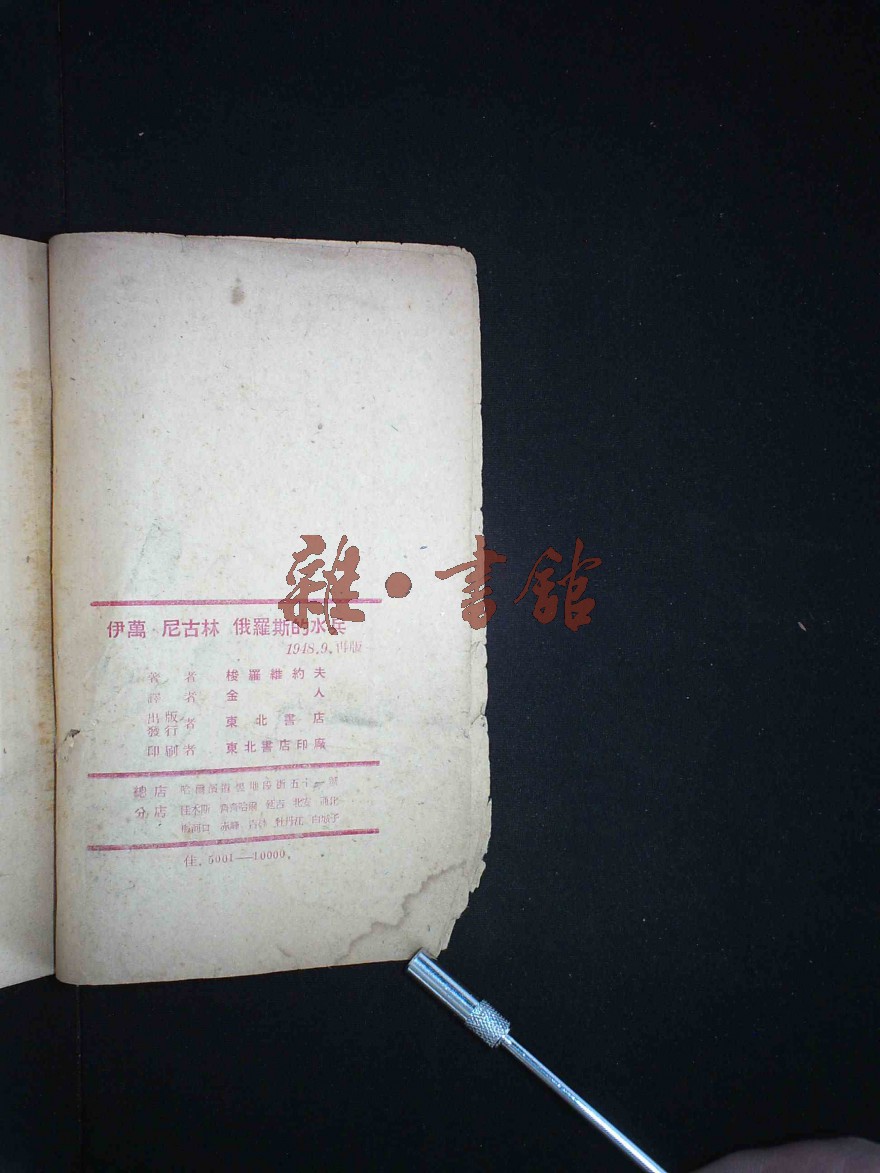 雜·書館
伊萬·尼古林 俄羅斯的水兵
1948.9.再版
著者 梭羅維約夫
譯者 金人
出版
發行 者 東北書店
印刷者 東北書店印廠
總店 哈爾濱道裡地段街五十一號
分店 佳木斯 齊齊哈爾 延吉 北安 通化
赤峰 牡丹江 白城子
佳.5001—10000.